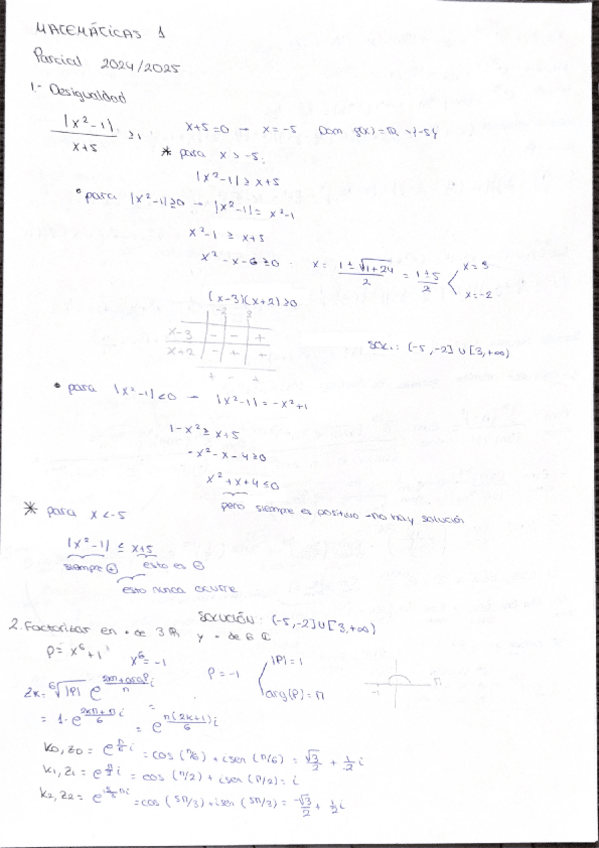 MATEMÁTICAS 1
Parcial 2024/2025
1.- Desigualdad
|x²-1| / x+5 ≥ 1
x+5=0 → x=-5
* para x > -5:
|x²-1| ≥ x+5
• para |x²-1| ≥ 0 → |x²-1| = x²-1
x²-1 ≥ x+5
x²-x-6 ≥ 0 x = (1±√(1+24))/2 = (1±5)/2 < x=3 x=-2
(x-3)(x+2) ≥ 0
-2 3
x-3 - - +
x+2 - + +
+ - +
SOL: (-5,-2] ∪ [3,+∞)
• para |x²-1| < 0 → |x²-1| = -x²+1
1-x² ≥ x+5
-x²-x-4 ≥ 0
x²+x+4 ≤ 0
pero siempre es positivo → no hay solución
* para x < -5
|x²-1| ≤ x+5
siempre ⊕ esto es ⊖
esto nunca ocurre
SOLUCIÓN: (-5,-2] ∪ [3,+∞)
2. Factorizar en + de 3 ℝ y + de 6 ℂ
P = x⁶+1 x⁶ = -1
P = -1 < |P| = 1 arg(P) = π
Zk = ⁶√|P| e^((2kπ+argP)/n i)
= 1·e^((2kπ+π)/6 i) = e^(π(2k+1)/6 i)
k0, z0 = e^(π/6 i) = cos(π/6) + i sen(π/6) = √3/2 + 1/2 i
k1, z1 = e^(π/2 i) = cos(π/2) + i sen(π/2) = i
k2, z2 = e^(5/6 πi) = cos(5π/3) + i sen(5π/3) = -√3/2 + 1/2 i